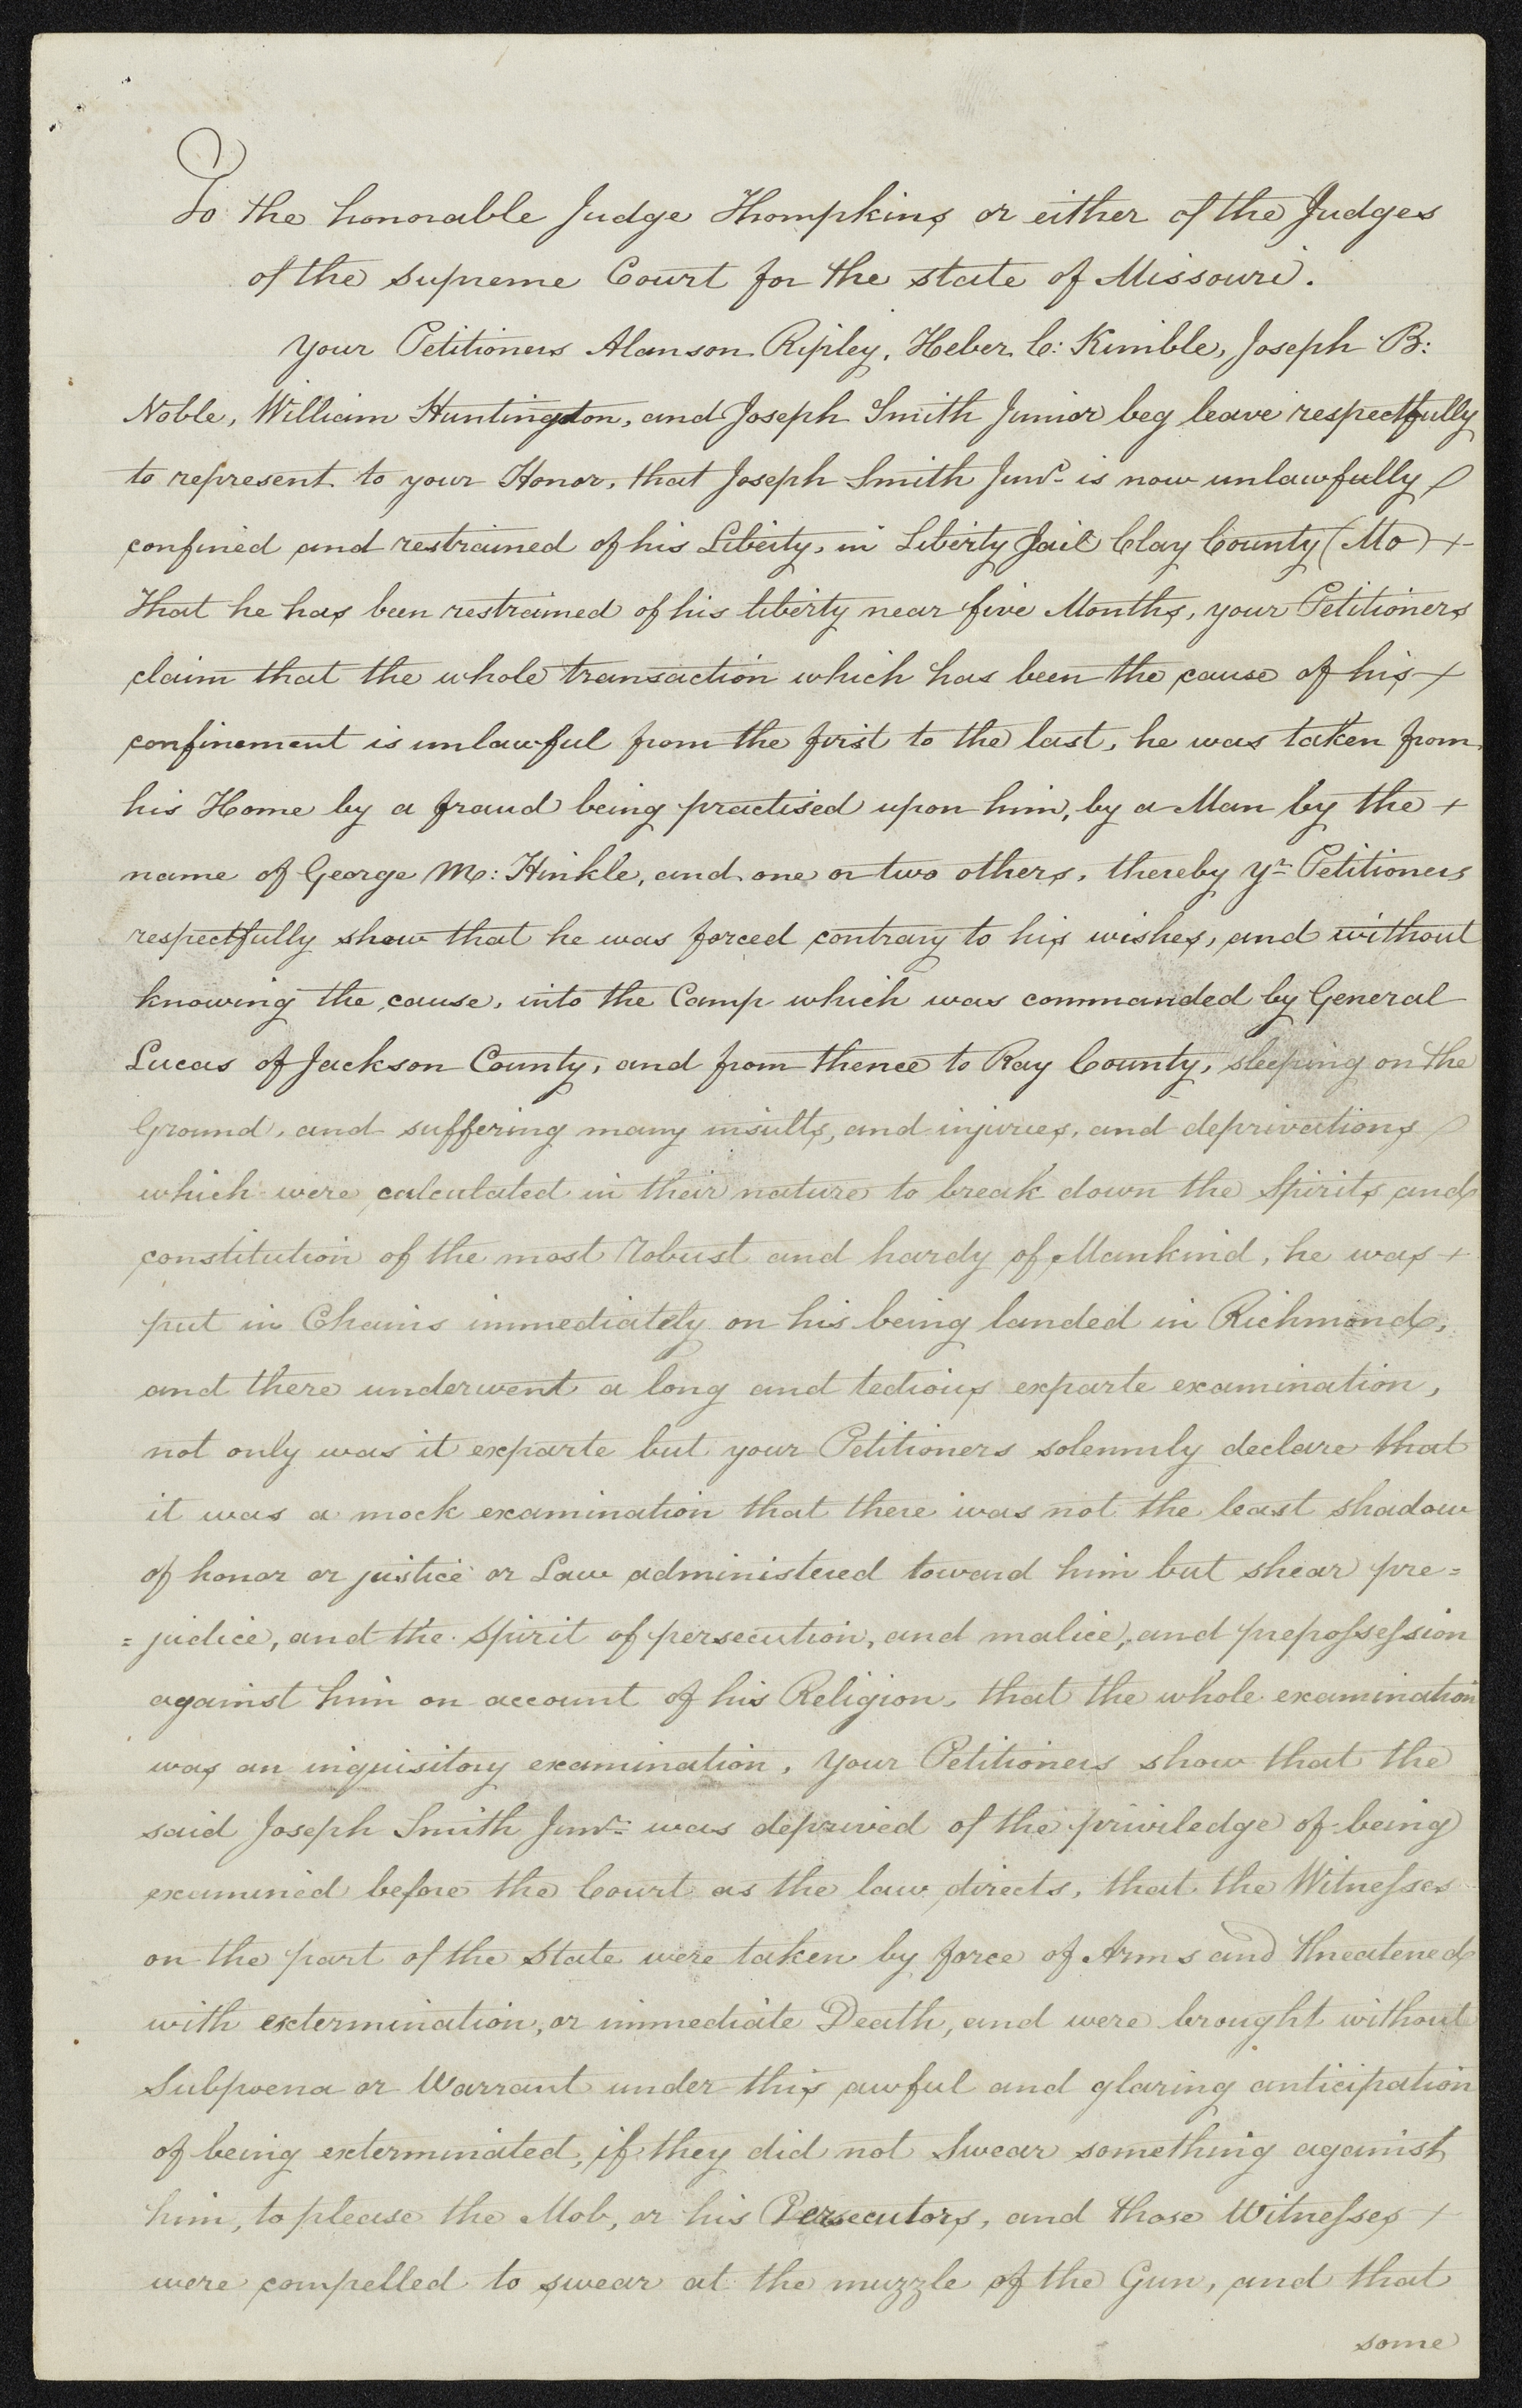 To the honorable Judge Thompkins or either of the Judges
of the supreme Court for the state of Missouri.
Your Petitioners Alanson Ripley, Heber C: Kimble, Joseph B:
Noble, William Huntington, and Joseph Smith Junior beg leave respectfully
to represent to your Honor, that Joseph Smith Junr. is now unlawfully
confined and restrained of his Liberty, in Liberty Jail Clay County (Mo) +
That he has been restrained of his liberty near five Months, your Petitioners
claim that the whole transaction which has been the cause of his +
confinement is unlawful from the first to the last, he was taken from
his Home by a fraud being practised upon him, by a Man by the +
name of George M: Hinkle, and one or two others, thereby yr. Petitioners
respectfully show that he was forced contrary to his wishes, and without
knowing the cause, into the Camp which was commanded by General
Lucas of Jackson County, and from thence to Ray County, sleeping on the
Ground, and suffering many insults, and injuries, and deprivations
which were calculated in their nature to break down the Spirits and
constitution of the most robust and hardy of Mankind, he was +
put in Chains immediately on his being landed in Richmond,
and there underwent a long and tedious exparte examination,
not only was it exparte but your Petitioners solemnly declare that
it was a mock examination that there was not the least shadow
of honor or justice or Law administered toward him but shear pre=
=judice, and the spirit of persecution, and malice, and prepossession
against him on account of his Religion, that the whole examination
was an inquisitory examination, Your Petitioners show that the
said Joseph Smith Junr. was deprived of the priviledge of being
examined before the Court as the law directs, that the Witnesses
on the part of the State were taken by force of Arms and threatened
with extermination, or immediate Death, and were brought without
Subpoena or Warrant under this awful and glaring anticipation
of being exterminated, if they did not Swear something against
him, to please the Mob, or his Persecutors, and those Witnesses +
were compelled to swear at the muzzle of the Gun, and that
some